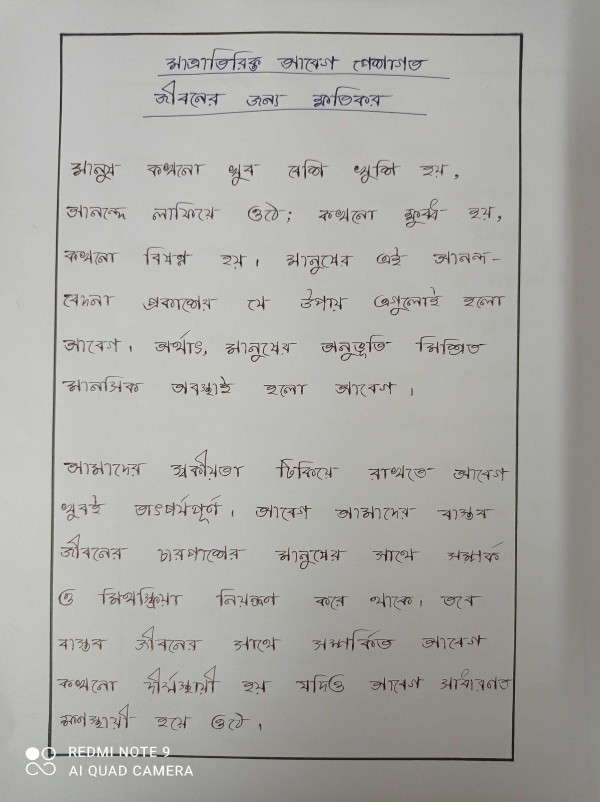 মাত্রাতিরিক্ত আবেগ পেশাগত
জীবনের জন্য ক্ষতিকর
মানুষ কখনো খুব বেশি খুশি হয়,
আনন্দে লাফিয়ে ওঠে; কখনো ক্ষুব্ধ হয়,
কখনো বিষণ্ন হয়। মানুষের এই আনন্দ-
বেদনা প্রকাশের যে উপায় এগুলোই হলো
আবেগ। অর্থাৎ, মানুষের অনুভূতি মিশ্রিত
মানসিক অবস্থাই হলো আবেগ।
আমাদের স্বকীয়তা টিকিয়ে রাখতে আবেগ
খুবই তাৎপর্যপূর্ণ। আবেগ আমাদের বাস্তব
জীবনের চারপাশের মানুষের সাথে সম্পর্ক
ও মিথস্ক্রিয়া নিয়ন্ত্রণ করে থাকে। তবে
বাস্তব জীবনের সাথে সম্পর্কিত আবেগ
কখনো দীর্ঘস্থায়ী হয় যদিও আবেগ সাধারণত
ক্ষণস্থায়ী হয়ে ওঠে।
REDMI NOTE 9
AI QUAD CAMERA